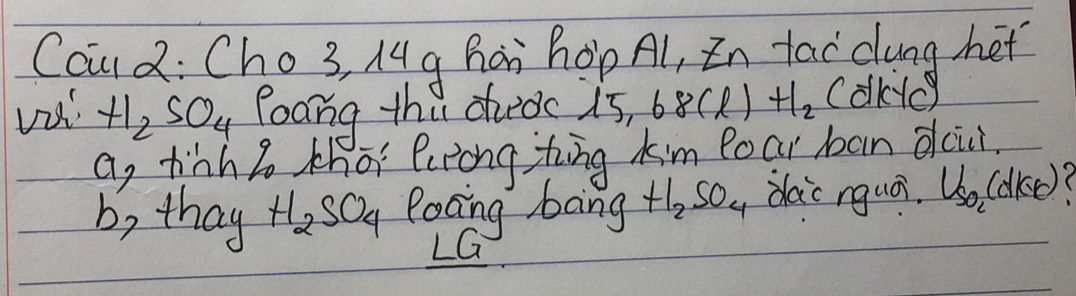 Câu 2: Cho 3,14g hỗn hợp Al, Zn tác dụng hết
với H₂SO₄ loãng thu được 15,68(l) H₂ (đktc)
a, tính % khối lượng từng kim loại ban đầu.
b, thay H₂SO₄ loãng bằng H₂SO₄ đặc nguội. VSO₂(đktc)?
LG